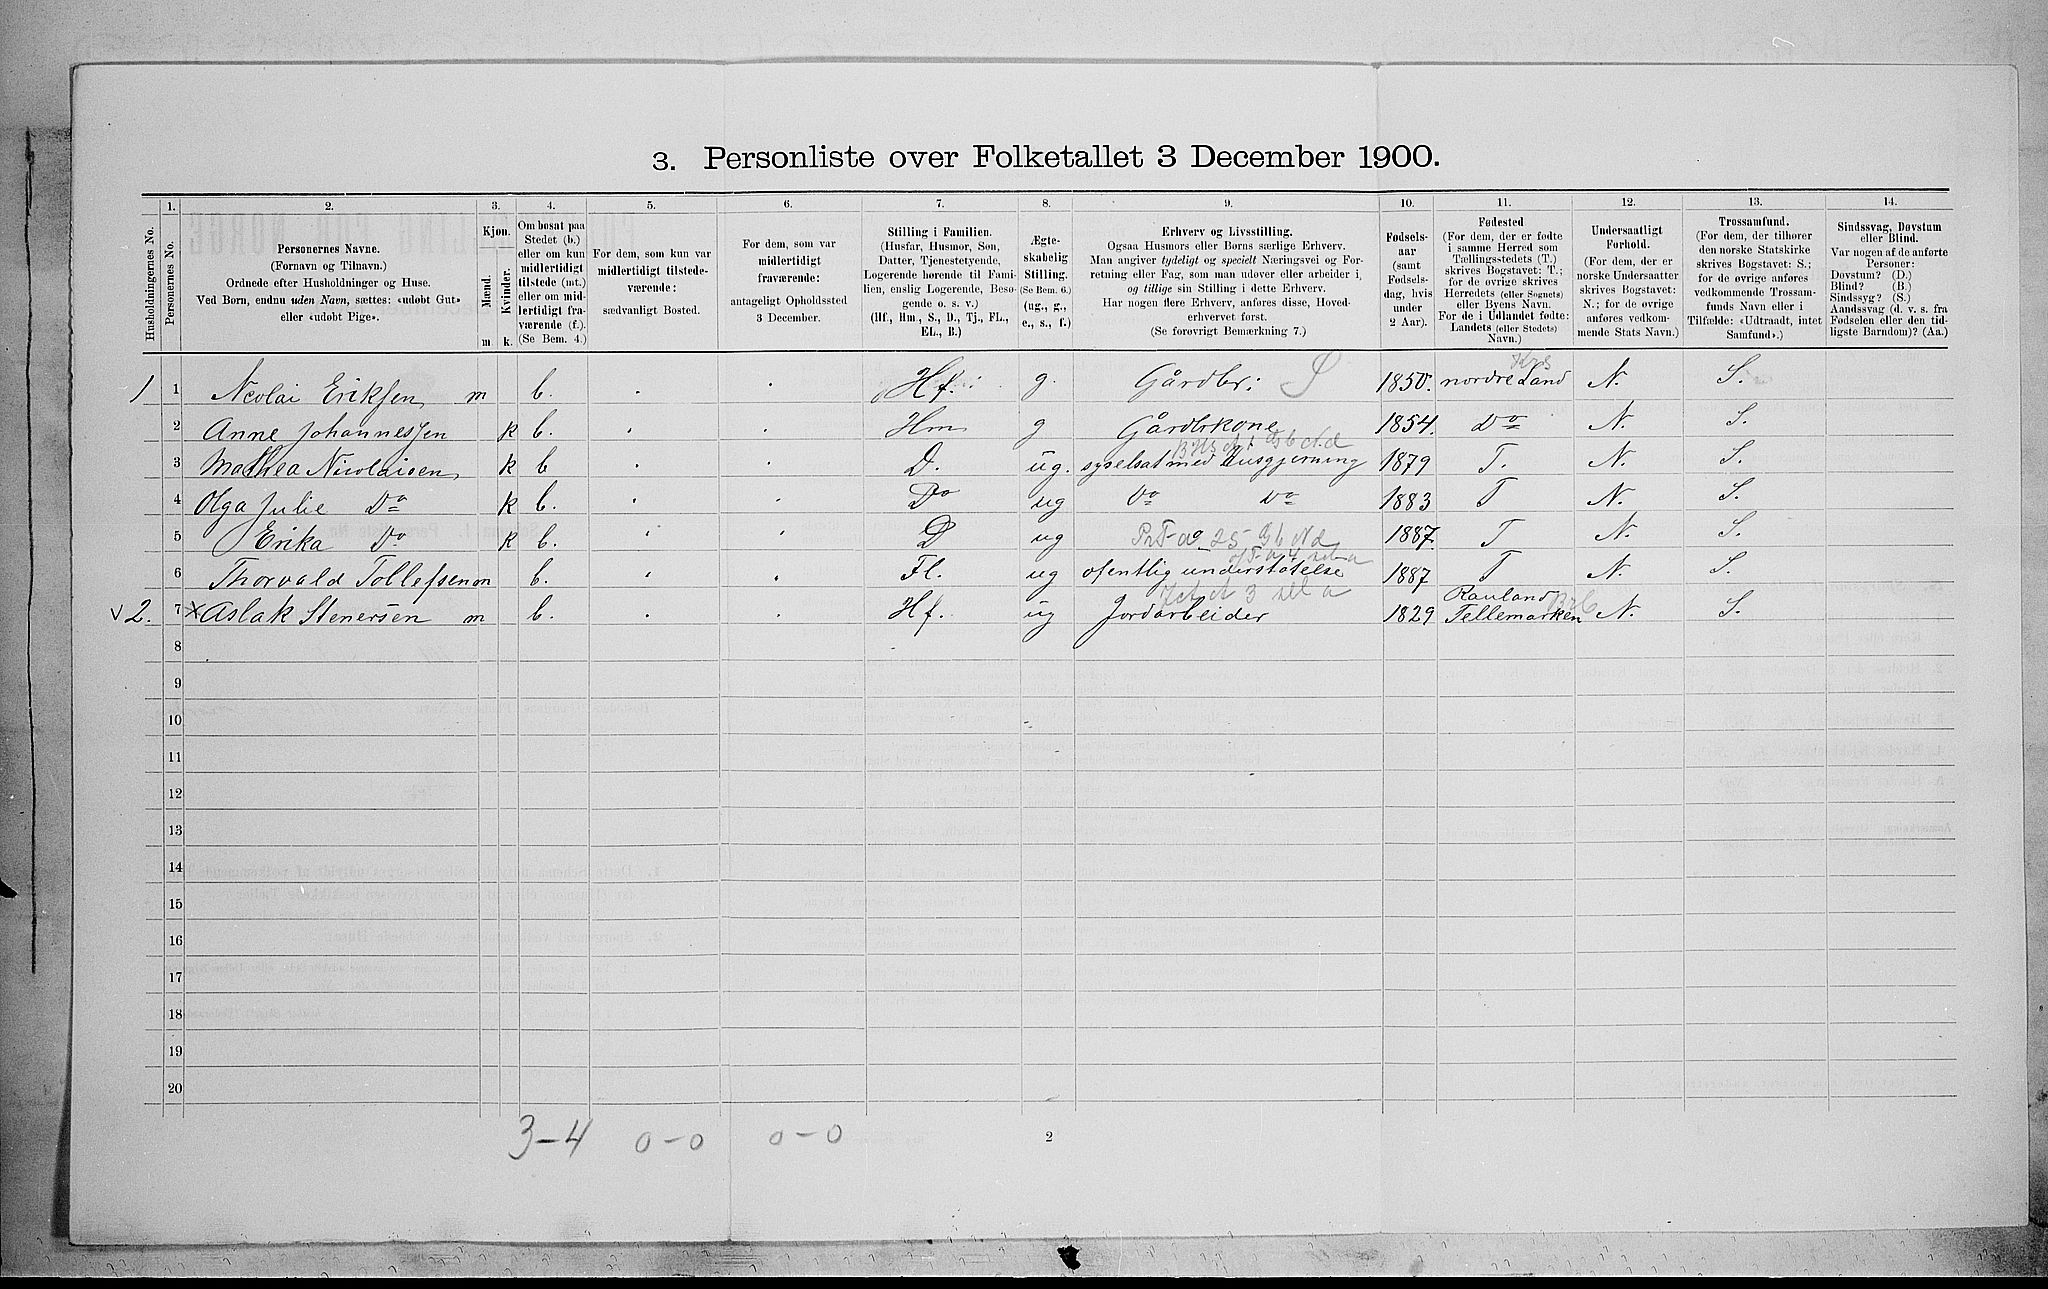 3. Personliste over Folketallet 3 December 1900.
Husholdningernes No.
1.
Personernes No.
2.
Personernes Navne.
(Fornavn og Tilnavn.)
Ordnede efter Husholdninger og Huse.
Ved Børn, endnu uden Navn, sættes: «udøbt Gut»
eller «udøbt Pige».
3.
Kjøn.
Mænd.
Kvinder.
m
k.
4.
Om bosat paa
Stedet (b.)
eller om kun
midlertidigt
tilstede (mt.)
eller om mid-
lertidigt fra-
værende (f.).
(Se Bem. 4.)
5.
For dem, som kun var
midlertidigt tilstede-
værende:
sædvanligt Bosted.
6.
For dem, som var
midlertidigt
fraværende:
antageligt Opholdssted
3 December.
7.
Stilling i Familien.
(Husfar, Husmor, Søn,
Datter, Tjenestetyende,
Logerende hørende til Fami-
lien, enslig Logerende, Besø-
gende o. s. v.)
(Hf., Hm., S., D., Tj., FL.,
EL., B.)
8.
Ægte-
skabelig
Stilling.
(Se Bem. 6.)
(ug., g.,
e., s., f.)
9.
Erhverv og Livsstilling.
Ogsaa Husmors eller Børns særlige Erhverv.
Man angiver tydeligt og specielt Næringsvei og For-
retning eller Fag, som man udøver eller arbeider i,
og tillige sin Stilling i dette Erhverv.
Har nogen flere Erhverv, anføres disse, Hoved-
erhvervet først.
(Se forøvrigt Bemærkning 7.)
10.
Fødsels-
aar
(samt
Fødsels-
dag, hvis
under
2 Aar).
11.
Fødested
(For dem, der er fødte
i samme Herred som
Tællingsstedets (T.)
skrives Bogstavet: T.;
for de øvrige skrives
Herredets (eller Sognets)
eller Byens Navn.
For de i Udlandet fødte:
Landets (eller Stedets)
Navn.)
12.
Undersaatligt
Forhold.
(For dem, der er
norske Undersaatter
skrives Bogstavet:
N.; for de øvrige
anføres vedkom-
mende Stats Navn.)
13.
Trossamfund.
(For dem, der tilhører
den norske Statskirke
skrives Bogstavet: S.;
for de øvrige anføres
vedkommende Trossam-
funds Navn eller i
Tilfælde: «Udtraadt, intet
Samfund».)
14.
Sindssvag, Døvstum
eller Blind.
Var nogen af de anførte
Personer:
Døvstum? (D.)
Blind? (B.)
Sindssyg? (S.)
Aandssvag (d. v. s. fra
Fødselen eller den tid-
ligste Barndom)? (Aa.)
1 1 Nicolai Eriksen m b. Hf. g. Gårdbr: 1850. nordre Land N. S.
2 Anne Johannessen k b. Hm g Gårdbrkone 1854. Do N. S.
3 Mathea Nicolaisen k b D. ug. syselsat med Husgjerning 1879 T. N. S.
4 Olga Julie Do k b. Do ug Do Do 1883 T N. S.
5 Erika Do k b. D ug 1887. T N. S.
6 Thorvald Tollefsen m b. Fl. ug ofentlig understøtelse 1887 T N. S.
v 2. 7 x Aslak Stenersen m b. Hf. ug Jordarbeider 1829 Rauland Tellemarken N. S.
8
9
10
11
12
13
14
15
16
17
18
19
20
3-4 0-0 0-0
2